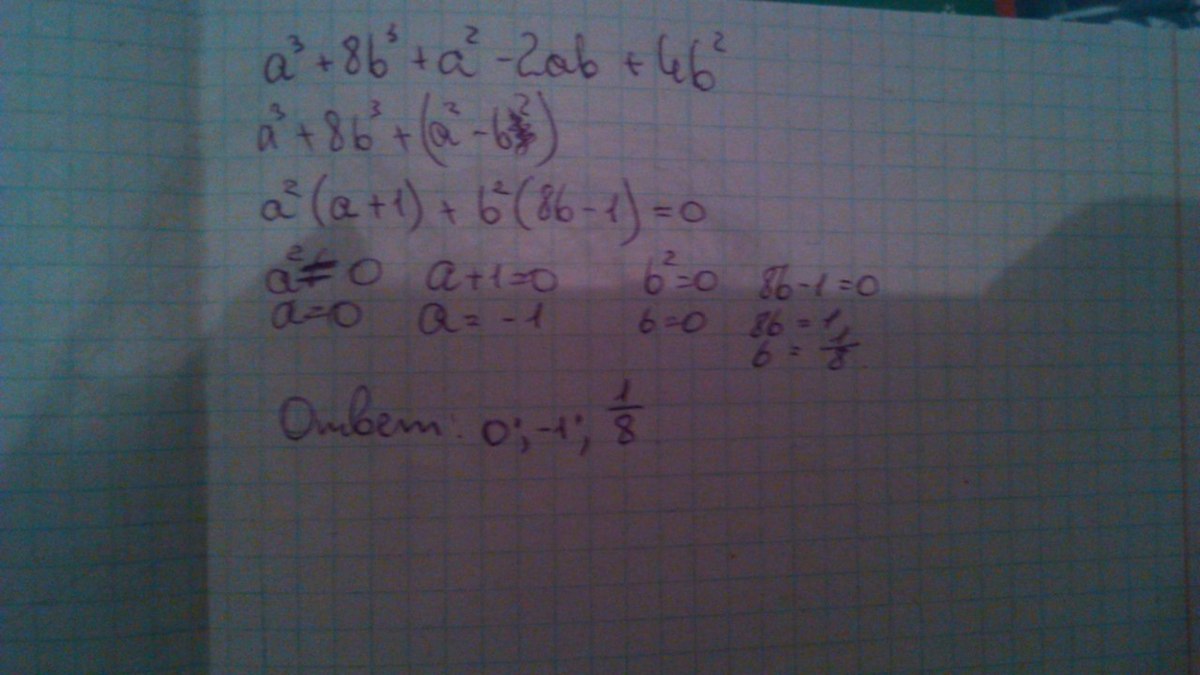 a³ + 8b³ + a² - 2ab + 4b²
a³ + 8b³ + (a² - b²)
a²(a+1) + b²(8b-1) = 0
a² = 0 a+1=0 b²=0 8b-1=0
a=0 a= -1 b=0 8b=1
b = 1/8
Ответ: 0; -1; 1/8